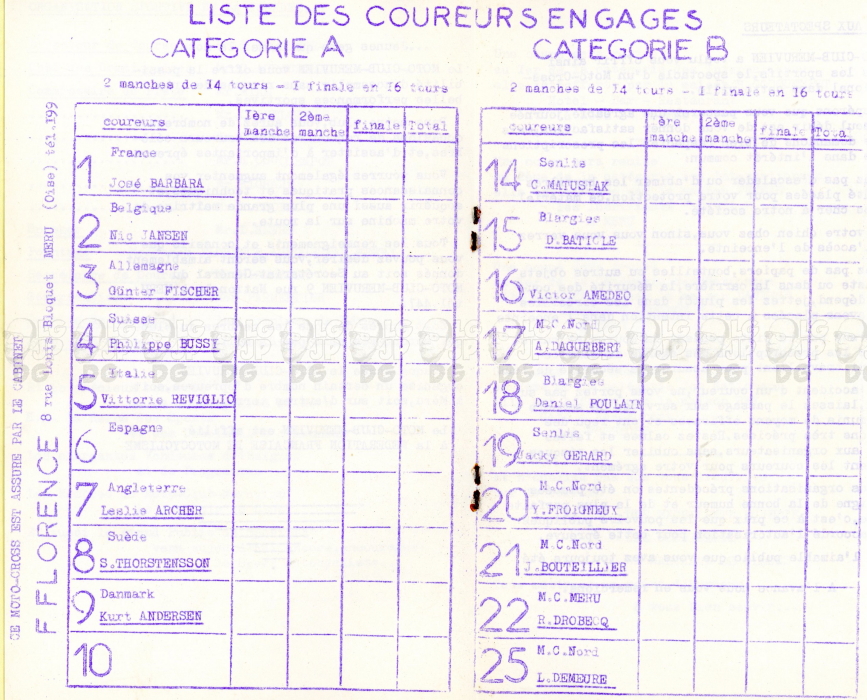 LISTE DES COUREURS ENGAGES
CATEGORIE A
2 manches de 14 tours - I finale en 16 tours
coureurs Ière manche 2ème manche finale Total
1 France
José BARBARA
2 Belgique
Nic JANSEN
3 Allemagne
Günter FISCHER
4 Suisse
Philippe BUSSY
5 Italie
Vittorio REVIGLIO
6 Espagne
7 Angleterre
Leslie ARCHER
8 Suède
S.THORSTENSSON
9 Danmark
Kurt ANDERSEN
10
CATEGORIE B
2 manches de 14 tours - I finale en 16 tours
coureurs ère manche 2ème manche finale Total
14 Senlis
C.MATUSIAK
15 Blargies
D.BATICLE
16 Victor AMEDEO
17 M.C.Nord
A.DAGUEBERT
18 Blargies
Daniel POULAIN
19 Senlis
Jacky GERARD
20 M.C.Nord
Y.FROIGNEUX
21 M.C.Nord
J.BOUTEILLIER
22 M.C.MERU
R.DROBECQ
25 M.C.Nord
L.DEMEURE
CE MOTO-CROSS EST ASSURE PAR LE CABINET
F FLORENCE 8 rue Louis Bloquet MERU (Oise) tél.199
LG JP DG